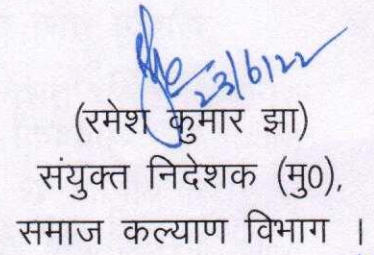 23/6/22
(रमेश कुमार झा)
संयुक्त निदेशक (मु0),
समाज कल्याण विभाग ।